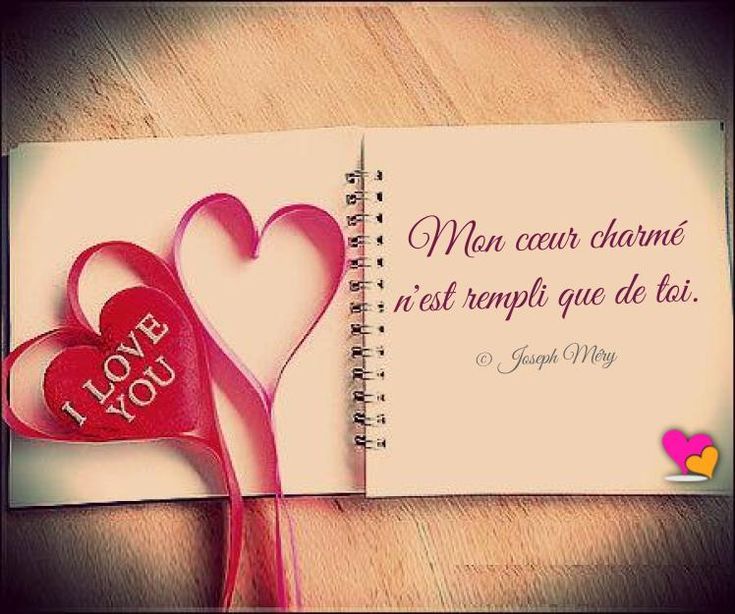 I LOVE
YOU
Mon cœur charmé
n'est rempli que de toi.
© Joseph Méry